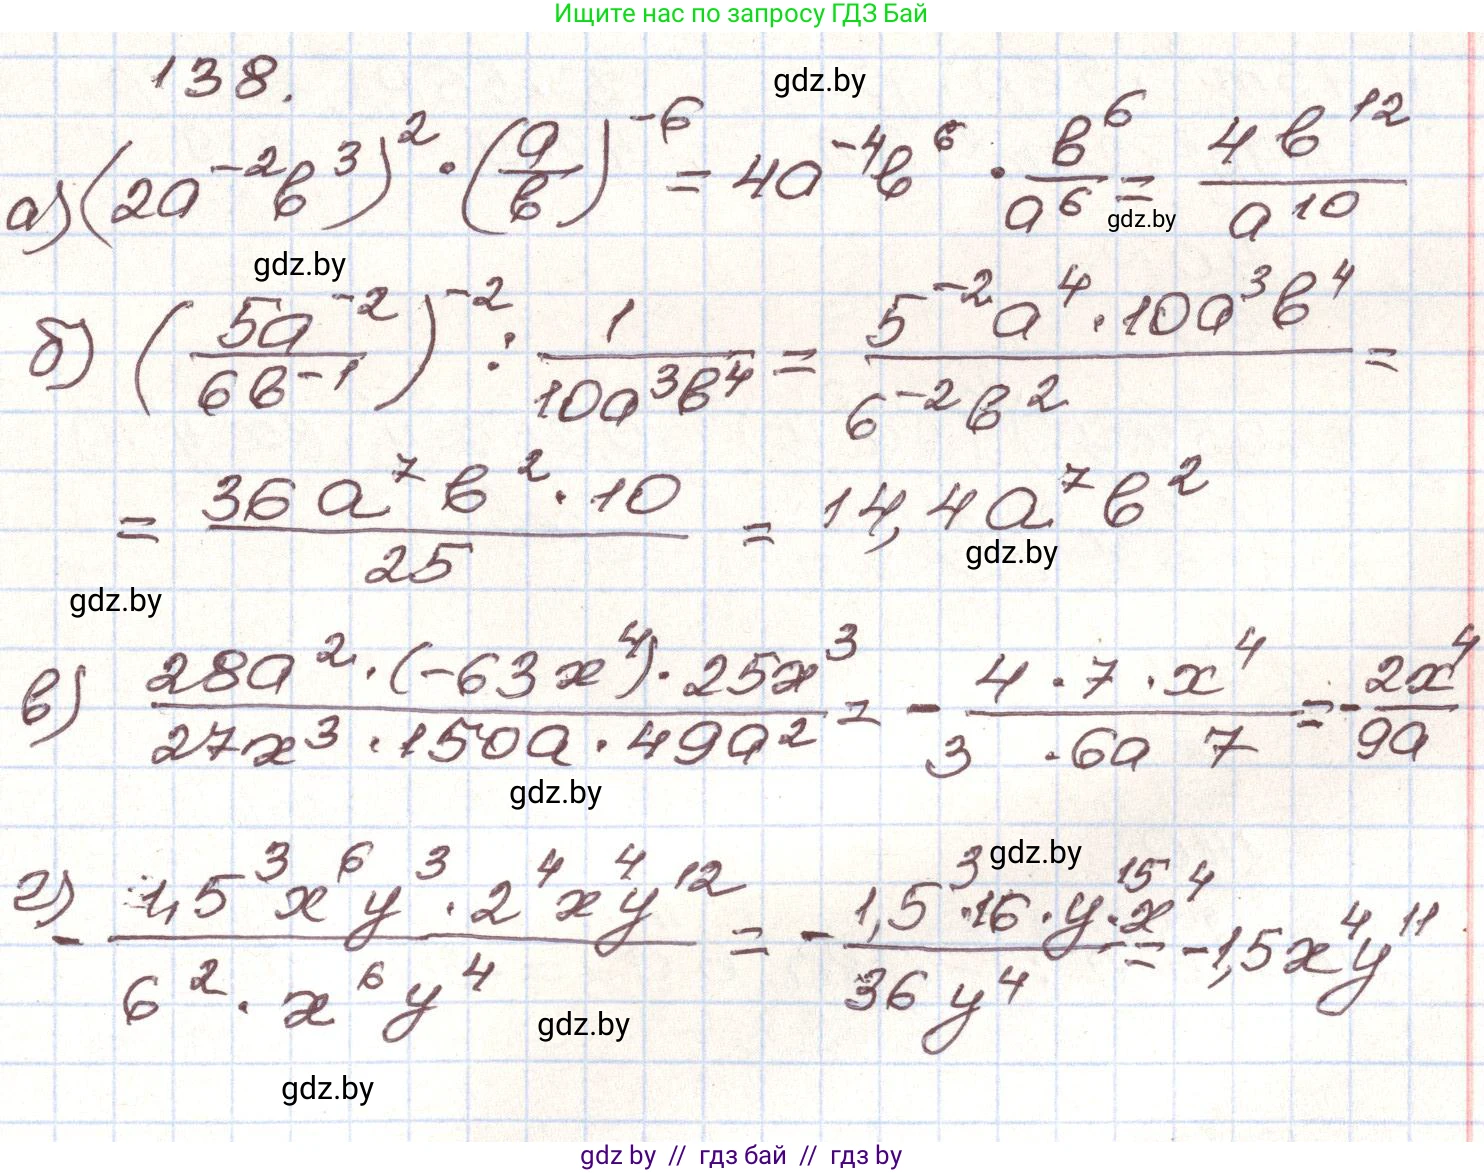 Ищите нас по запросу ГДЗ Бай
138.
gdz.by
а) (2a⁻²b³)² · (a/b)⁻⁶ = 4a⁻⁴b⁶ · b⁶/a⁶ = 4b¹²/a¹⁰
gdz.by
gdz.by
б) (5a⁻²/6b⁻¹)⁻² : 1/10a³b⁴ = 5⁻²a⁴·10a³b⁴/6⁻²b² =
= 36a⁷b²·10/25 = 14,4a⁷b²
gdz.by
gdz.by
в) 28a²·(-63x⁴)·25x³/27x³·150a·49a² = - 4·7·x⁴/3 ·6a 7 = - 2x⁴/9a
gdz.by
gdz.by
г) - 1,5³x⁶y³·2⁴x⁴y¹²/6²·x⁶y⁴ = - 1,5³·16·y¹⁵·x⁴/36y⁴ = -1,5x⁴y¹¹
gdz.by
gdz.by
gdz by // гдз бай // гдз by